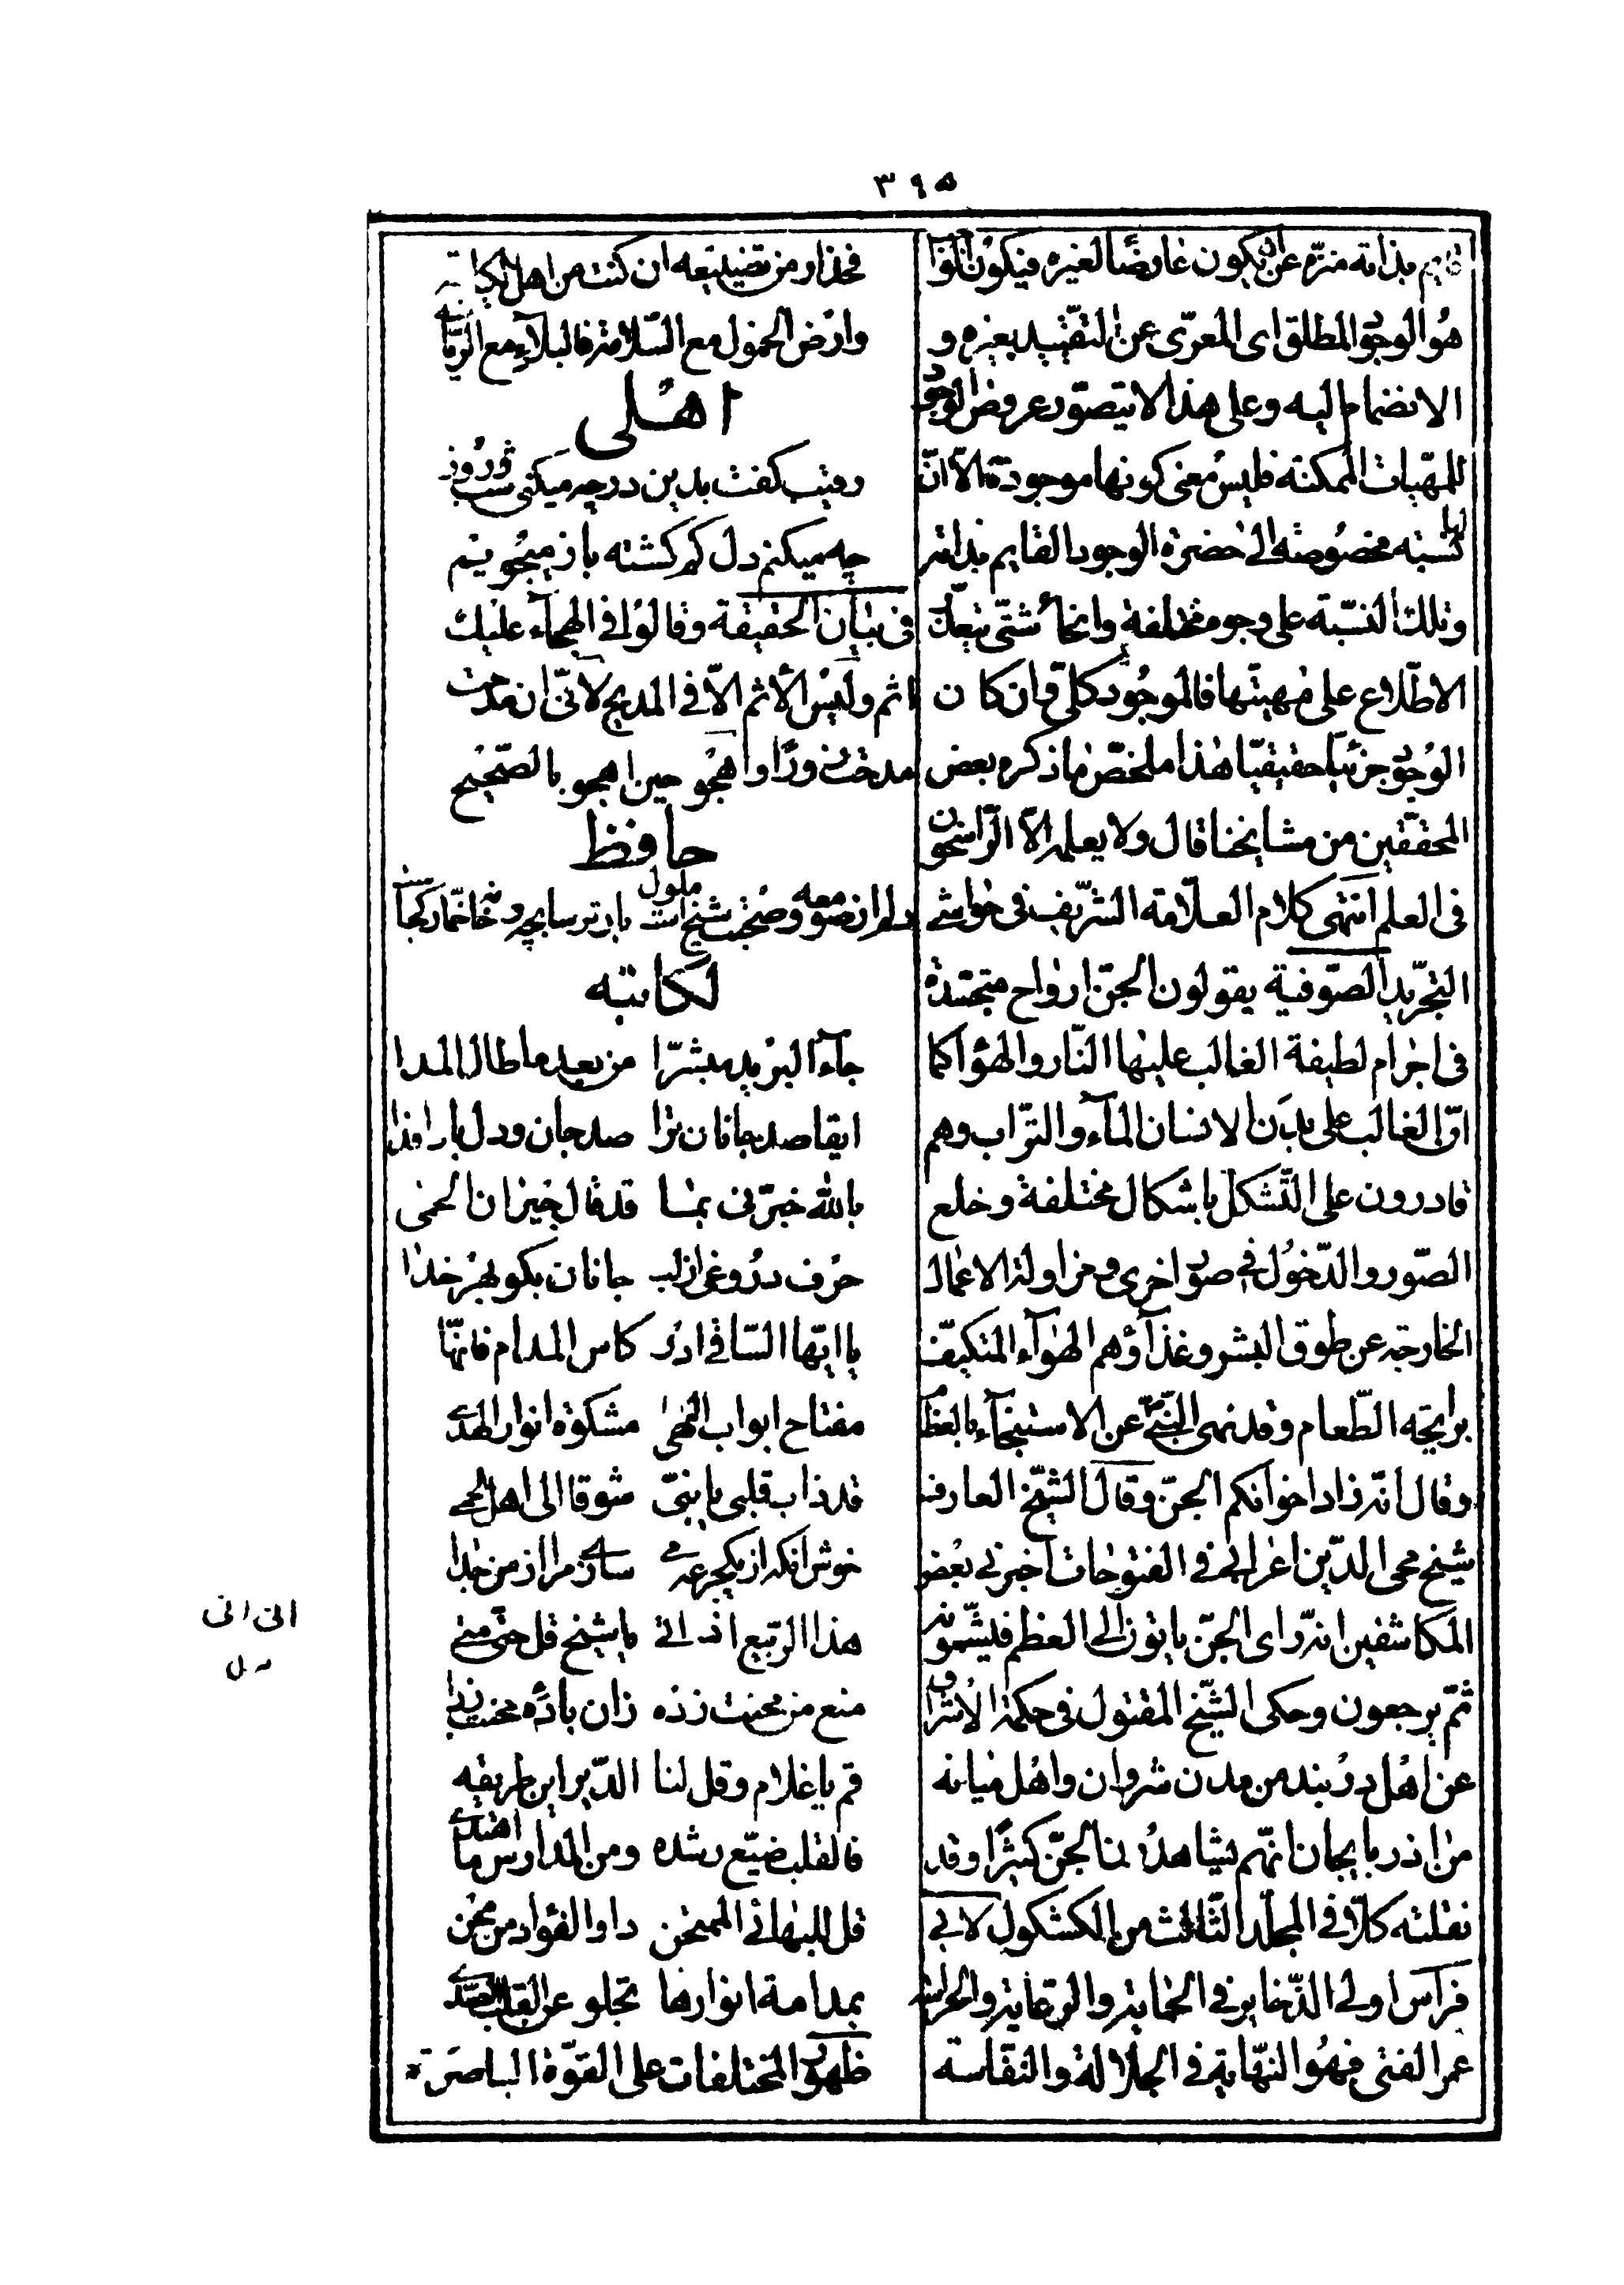 ٣٩٥
قايم بذاته منزه عن ان يكون عارضا لغيره فيكون الواجب
هو الوجود المطلق اى المعرّى عن التقييد بغيره و
الانضمام اليه وعلى هذا لا يتصوّر عروض الوجود
للمهيات الممكنة فليس معنى كونها موجودة الّا انّ
لها نسبة مخصوصة الى حضرة الوجود القايم بذاته
وتلك النسبة على وجوه مختلفة وانحاء شتّى يتعذّر
الاطلاع على مهيتها فالموجود كلى وان كان
الوجود جزئيا حقيقيّا هذا ملخّص ما ذكره بعض
المحققين من مشايخنا قال ولا يعلمه الّا الرّاسخون
فى العلم انتهى كلام العلّامة الشريف فى حواشى
التجريد الصّوفية يقولون الجنّ ارواح متجسّدة
فى اجرام لطيفة الغالب عليها النّار والهوآء كما
انّ الغالب على بدن الانسان المآء والتراب وهم
قادرون على التّشكل باشكال مختلفة وخلع
الصّور والدّخول فى صور اخرى ومزاولة الاعمال
الخارجة عن طوق البشر وغذآؤهم الهوآء المتكيّف
برايحة الطّعام وقد نهى النبىّ ص عن الاستنجآء بالعظم
وقال انّه زاد اخوانكم الجنّ وقال الشيخ العارف
شيخ محى الدّين اعرابى فى الفتوحات اخبرنى بعض
المكاشفين انه راى الجنّ ياتون الى العظم فيشمونه
ثمّ يرجعون وحكى الشّيخ المقتول فى حكمة الاشراق
عن اهل دربند من مدن شروان واهل ميانه
من اذربايجان انّهم يشاهدون الجنّ كثيرا وقد
نقلته كلّا فى المجلّد الثالث من الكشكول لابى
فراس اولى الذّخاير فى الحماية والرّعاية والحراسة
عمر الفتى فهو النّهاية فى الجلالة والنفاسة
فحذار من تضييعه ان كنت من اهل الكياسه
وارض الخمول مع السّلامة فالبلاء مع الرّياسه
اهلى
رقيب كفت بدين در چه ميكنى شب وروز
چه ميكنم دل كم كشته باز ميجويم
فى بيان الحقيقة وقالوا فى الهجآء عليك
اثم وليس الاثم الّا فى المديح لانّى ان مدحت
مدحت زورًا واهجو حين اهجو بالصّحيح
حافظ
دلم از صومعه وصحبت شيخ است ملول يار ترسابچه و خانه خمّار كجاست
لكاتبه
جآء البريد مبشّرا من بعد ما طال المدا
ايقاصد جانان ترا صد جان ودل بادا فدا
بالله خبّرنى بما قد قال جيران الحمى
حرف دروغى از لب جانان بكو بهر خدا
يا ايّها السّاقى ادر كاس المدام فانّها
مفتاح ابواب النّهى مشكوة انوار الهدى
قد ذاب قلبى يا بنىّ شوقا الى اهل الحمى
خوش انكه از يكجرعه مى سازى مرا از من جدا
هذا الربيع اذ اتى يا شيخ قل حتّى متى
منع من محنت زده زان باده محنت زدا
قم يا غلام وقل لنا الدّير اين طريقه
فالقلب ضيّع رشده ومن المدارس ما اهتدى
قل للبهائى الممتحن داو الفؤاد من محن
بمدامة انوارها تجلو عن القلب الصّدى
ظهور المختلفات على القوّة الباصرة